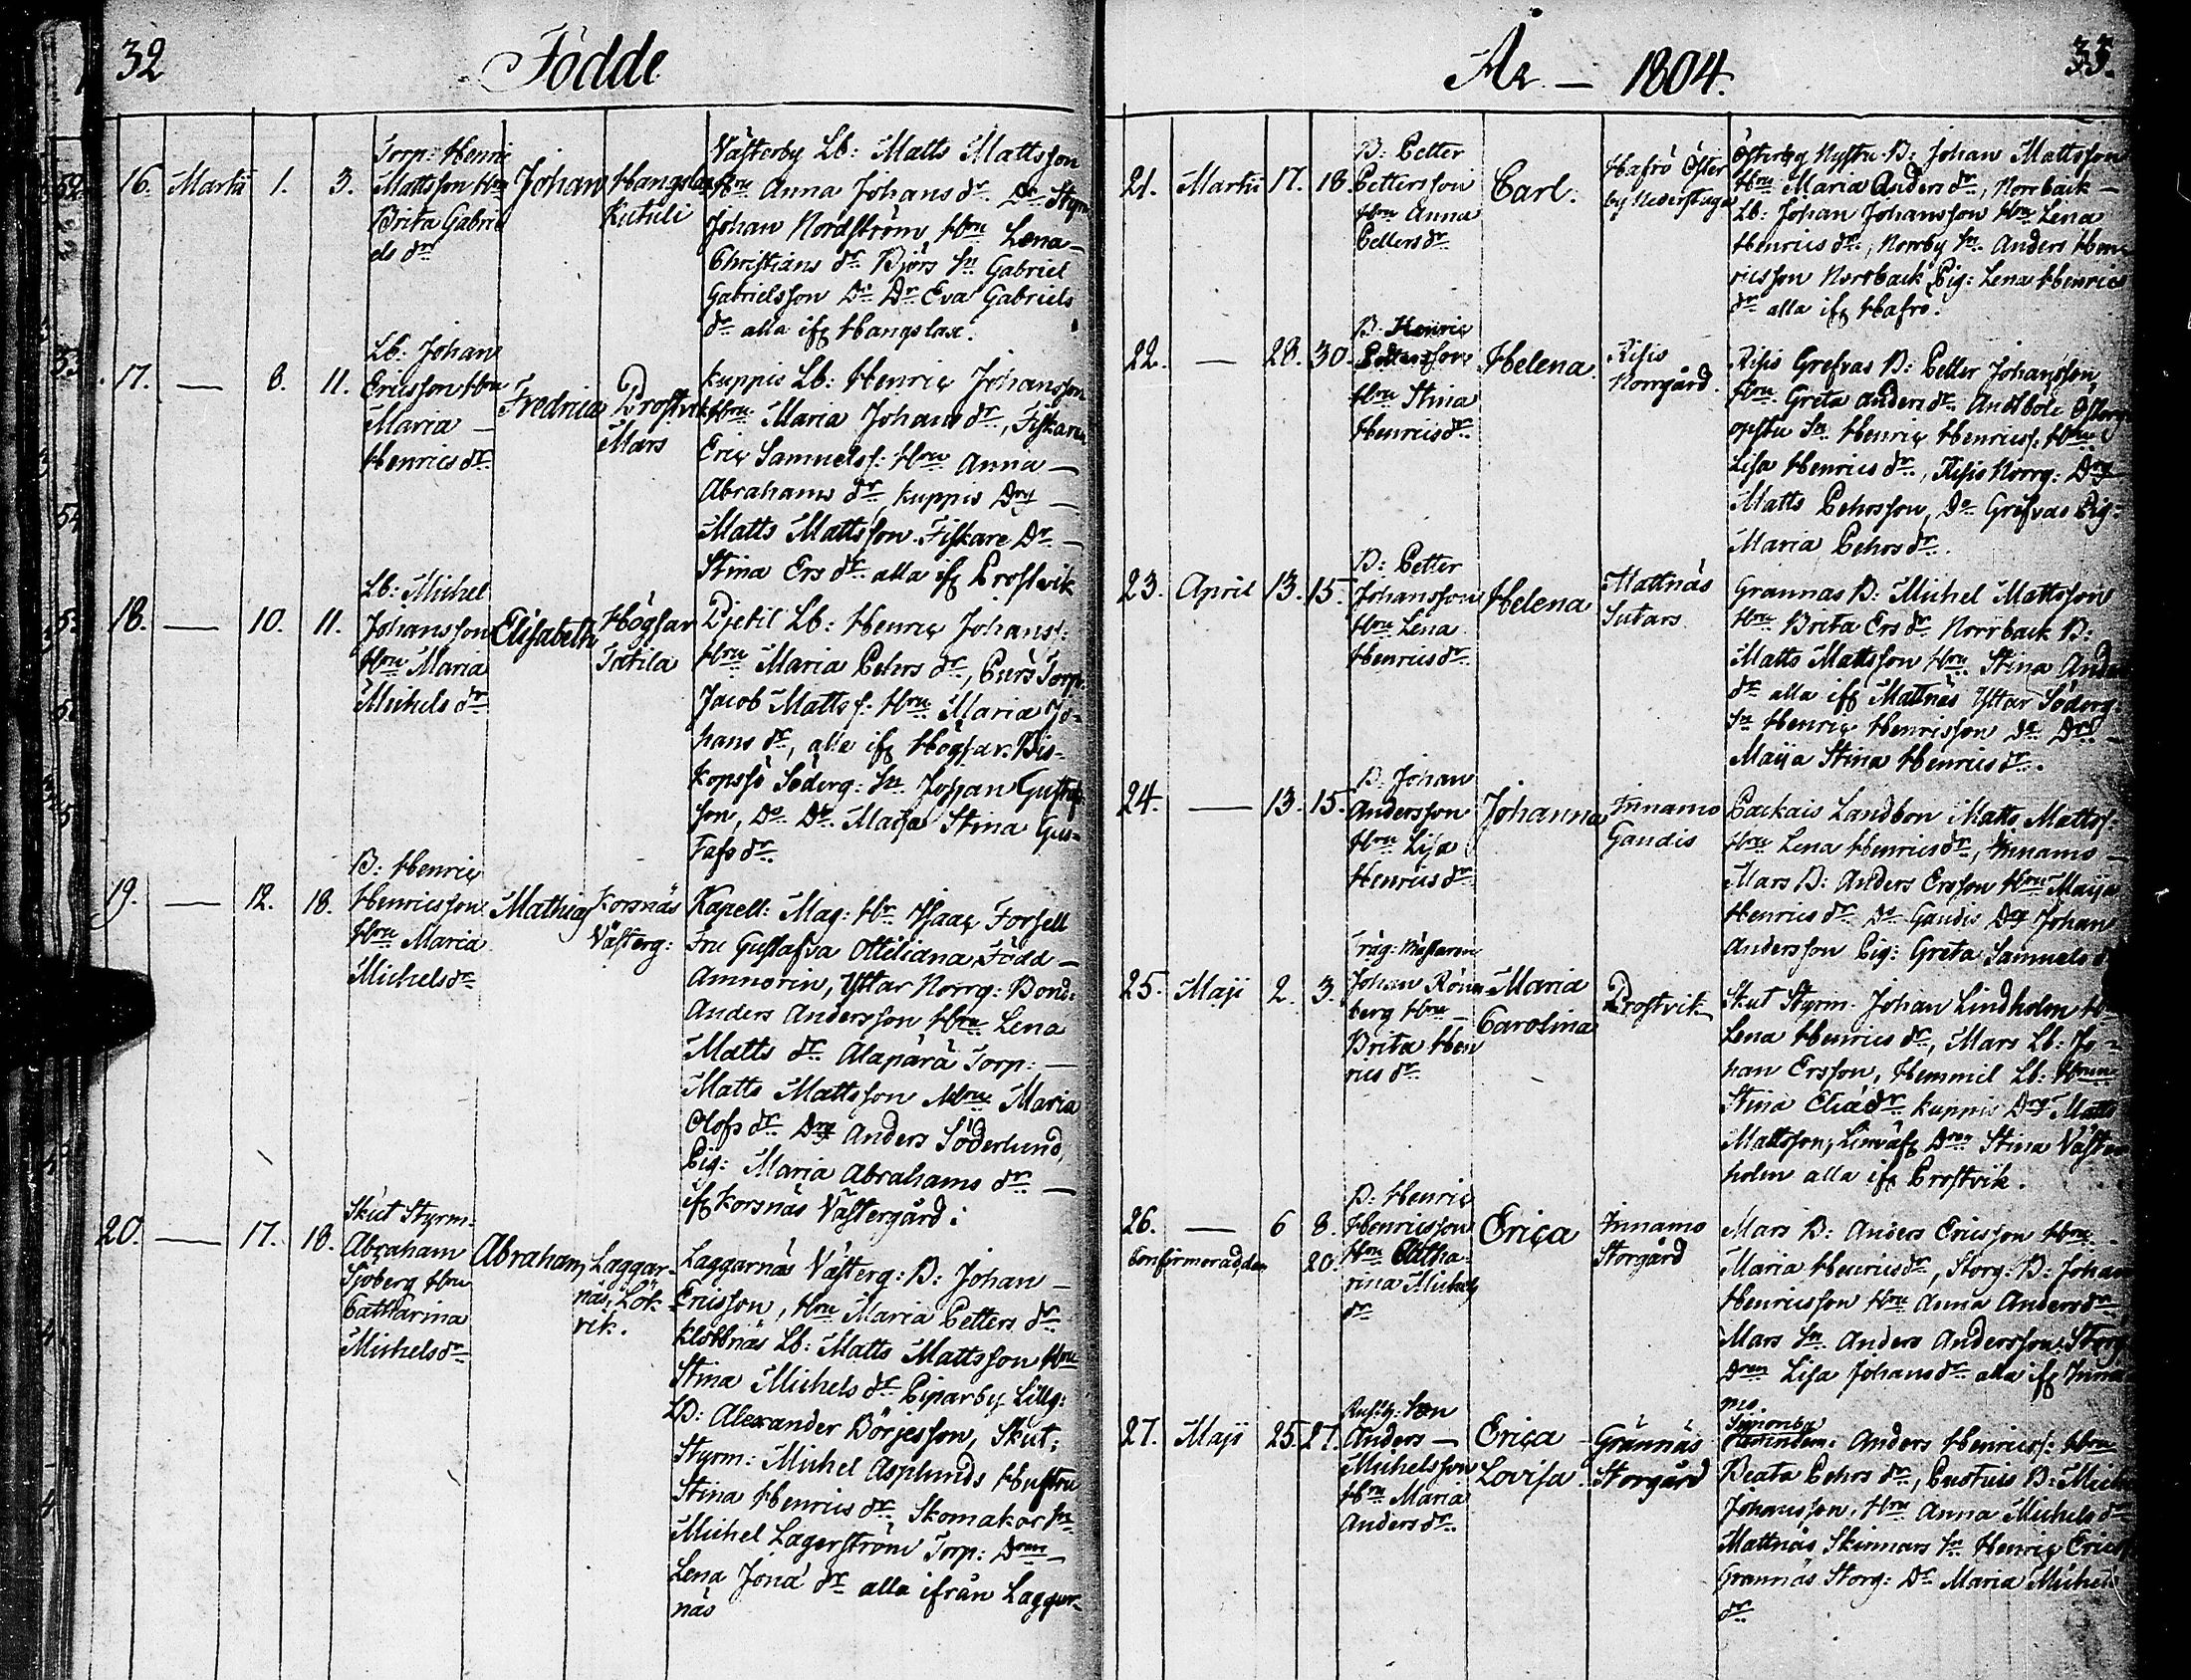 32
Födde
16. Martii 1. 3.
Torp: Henric
Mattsson Hru
Brita Gabri
els dr
Johan
Hangslax
Kutuli
Västerby Lb: Matts Mattsson
Hru Anna Johans dr Do Styrm
Johan Nordström, Hru Lena
Christians dr Björs Sn Gabriel
Gabrielsson Do Dr Eva Gabriels
dr alla ifr Hangslax.
17. — 8. 11.
Lb: Johan
Ericsson Hru
Maria —
Henrics dr
Fredrica
Prostvik
Mars
Kuppis Lb: Henric Johansson
Hru Maria Johans dr, Fiskaren
Eric Samuelss: Hru Anna —
Abrahams dr Kuppis Drg —
Matts Mattsson Fiskare Dr —
Stina Ers dr alla ifr Prostvik
18. — 10. 11.
Lb: Michel
Johansson
Hru Maria
Michels dr
Elisabeth
Högsar
Tätila
Pjekil Lb: Henric Johanss:
Hru Maria Pehrs dr, Purs Torp:
Jacob Mattss: Hru Maria Jo-
hans dr, alla ifr Högsar. Bis-
kopsö Söderg: Sn Johan Gustafs
son, Do Dr Maija Stina Gus-
tafs dr
19. — 12. 18.
B: Henric
Henricsson
Hru Maria
Michels dr
Mathias
Korsnäs
Västerg:
Kapell: Mag: Hr Isaac Forsell
Fru Gustafva Ottiliana Född —
Amnorin, Yttar Norrg: Bond:
Anders Andersson Hru Lena
Matts dr Alapärä Torp: —
Matts Mattsson Hru Maria
Olofs dr Drg Anders Söderlund,
Pig: Maria Abrahams dr —
ifr Korsnäs Västergård.
20. — 17. 18.
Skut Styrm:
Abraham
Sjöberg Hru
Catharina
Michels dr
Abraham
Laggar-
näs, Lök-
vik.
Laggarnäs Västerg: B: Johan —
Ericsson, Hru Maria Petters dr
Klobbnäs Lb: Matts Mattsson Hru
Stina Michels dr Piparby Lillg:
B: Alexander Börjesson, Skut:
Styrm: Michel Asplunds Hustru
Stina Henrics dr Skomakar Sn
Michel Lagerström Torp: Dren
Lena Jona dr alla ifrån Laggar-
näs
År — 1804.
33.
21. Martii 17. 18
B: Petter
Pettersson
Hru Anna
Petters dr
Carl.
Hafrö Öster
by Nederstuga
Österby Nystu B: Johan Mattsson
Hru Maria Anders dr, Norrback —
Lb: Johan Johansson Hru Lena
Henrics dr, Norrby Sn Anders Hen-
ricsson Norrback Pig: Lena Henrics
dr alla ifr Hafrö.
22. — 28. 30.
B: Henric
Pettersson
Hru Stina
Henrics dr
Helena
Risis
Norrgård.
Risis Grefvas B: Petter Johansson,
Hru Greta Anders dr Andbole Österg
opstu Sn Henric Henricss: Hru
Lisa Henrics dr, Risis Norrg: Drg
Matts Pehrsson, Do Grefvas Pig:
Maria Pehrs dr.
23. April 13. 15.
B: Petter
Johansson
Hru Lena
Henrics dr
Helena
Mattnäs
Sutars
Grannas B: Michel Mattsson
Hru Brita Ers dr Norrback B:
Matts Mattsson Hru Stina Anders
dr alla ifr Mattnäs Yttar Söderg:
Sn Henric Henricsson Do Dr —
Maija Stina Henrics dr.
24. — 13. 15.
B: Johan
Andersson
Hru Lisa
Henrics dr
Johanna
Innamo
Gaudis
Packais Landbon Matts Mattss:
Hru Lena Henrics dr, Innamo —
Mars B: Anders Ersson Hru Maija
Henrics dr Do Gaudis Drg Johan
Andersson Pig: Greta Samuels dr
25. Maji 2. 3.
Träg: Mästaren
Johan Rönn-
berg Hru —
Brita Hen
rics dr
Maria
Carolina
Prostvik
Skut Styrm: Johan Lindholm H
Lena Henrics dr, Mars Lb: Jo-
han Ersson, Hemmil Lb: Hrun
Stina Elia dr Kuppis Drg Matts
Mattsson, Linväf: Dren Stina Väster
holm alla ifr Prostvik.
26. — 6 8.
Confirmerad den 20.
B: Henric
Henricsson
Hru Catha-
rina Michels
dr
Erica
Innamo
Storgård
Mars B: Anders Ericsson Hru
Maria Henrics dr, Storg: B: Johan
Henricsson Hru Anna Anders dr
Mars Sn Anders Andersson, Storg
Dren Lisa Johans dr alla ifr Inna-
mo.
27. Maji 25. 27.
Anders —
Michelsson
Hru Maria
Anders dr
Erica —
Lovisa
Grännäs
Storgård
Simonby
Anders Henricss: Hru
Beata Pehrs dr, B: Mich
Johansson, Hru Anna Michels dr
Mattnäs Skinnars Sn Henric Erics
Grannäs Storg: Dr Maria Michels
dr